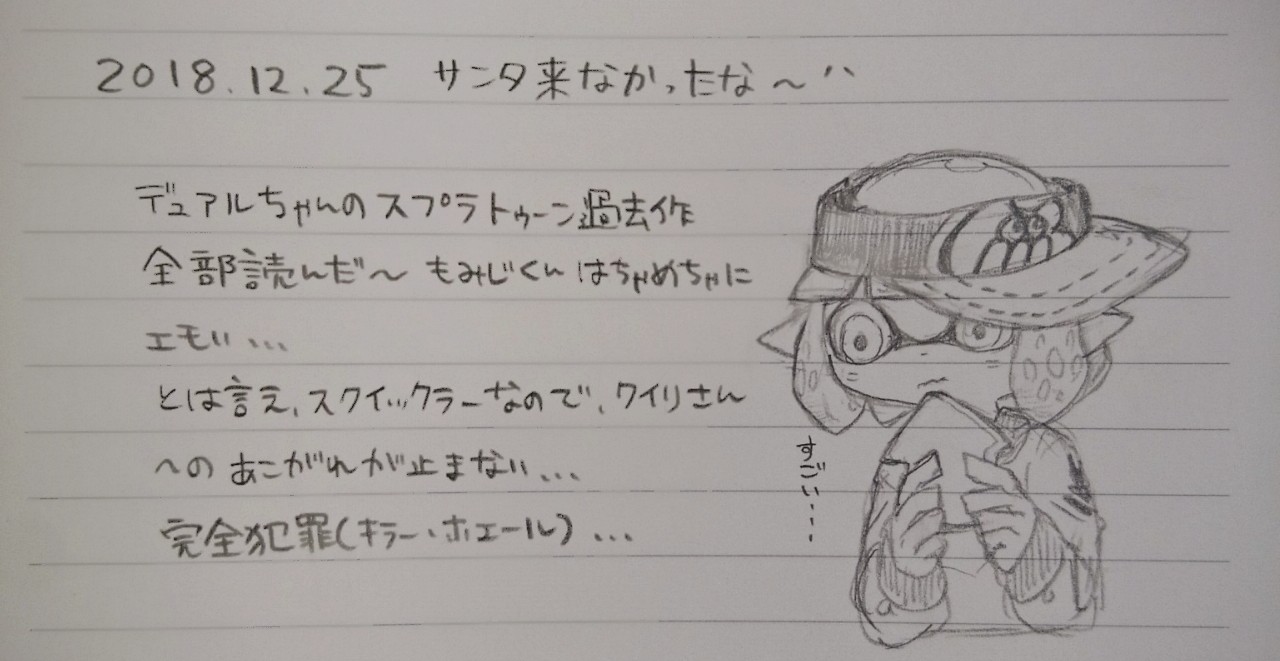 2018.12.25 サンタ来なかったな〜
デュアルちゃんのスプラトゥーン過去作
全部読んだ〜 もみじくんはちゃめちゃに
エモい...
とは言え、スクイックラーなので、ワイリさん
へのあこがれが止まない...
完全犯罪(キラー・ホエール)...
すごい・・・・・